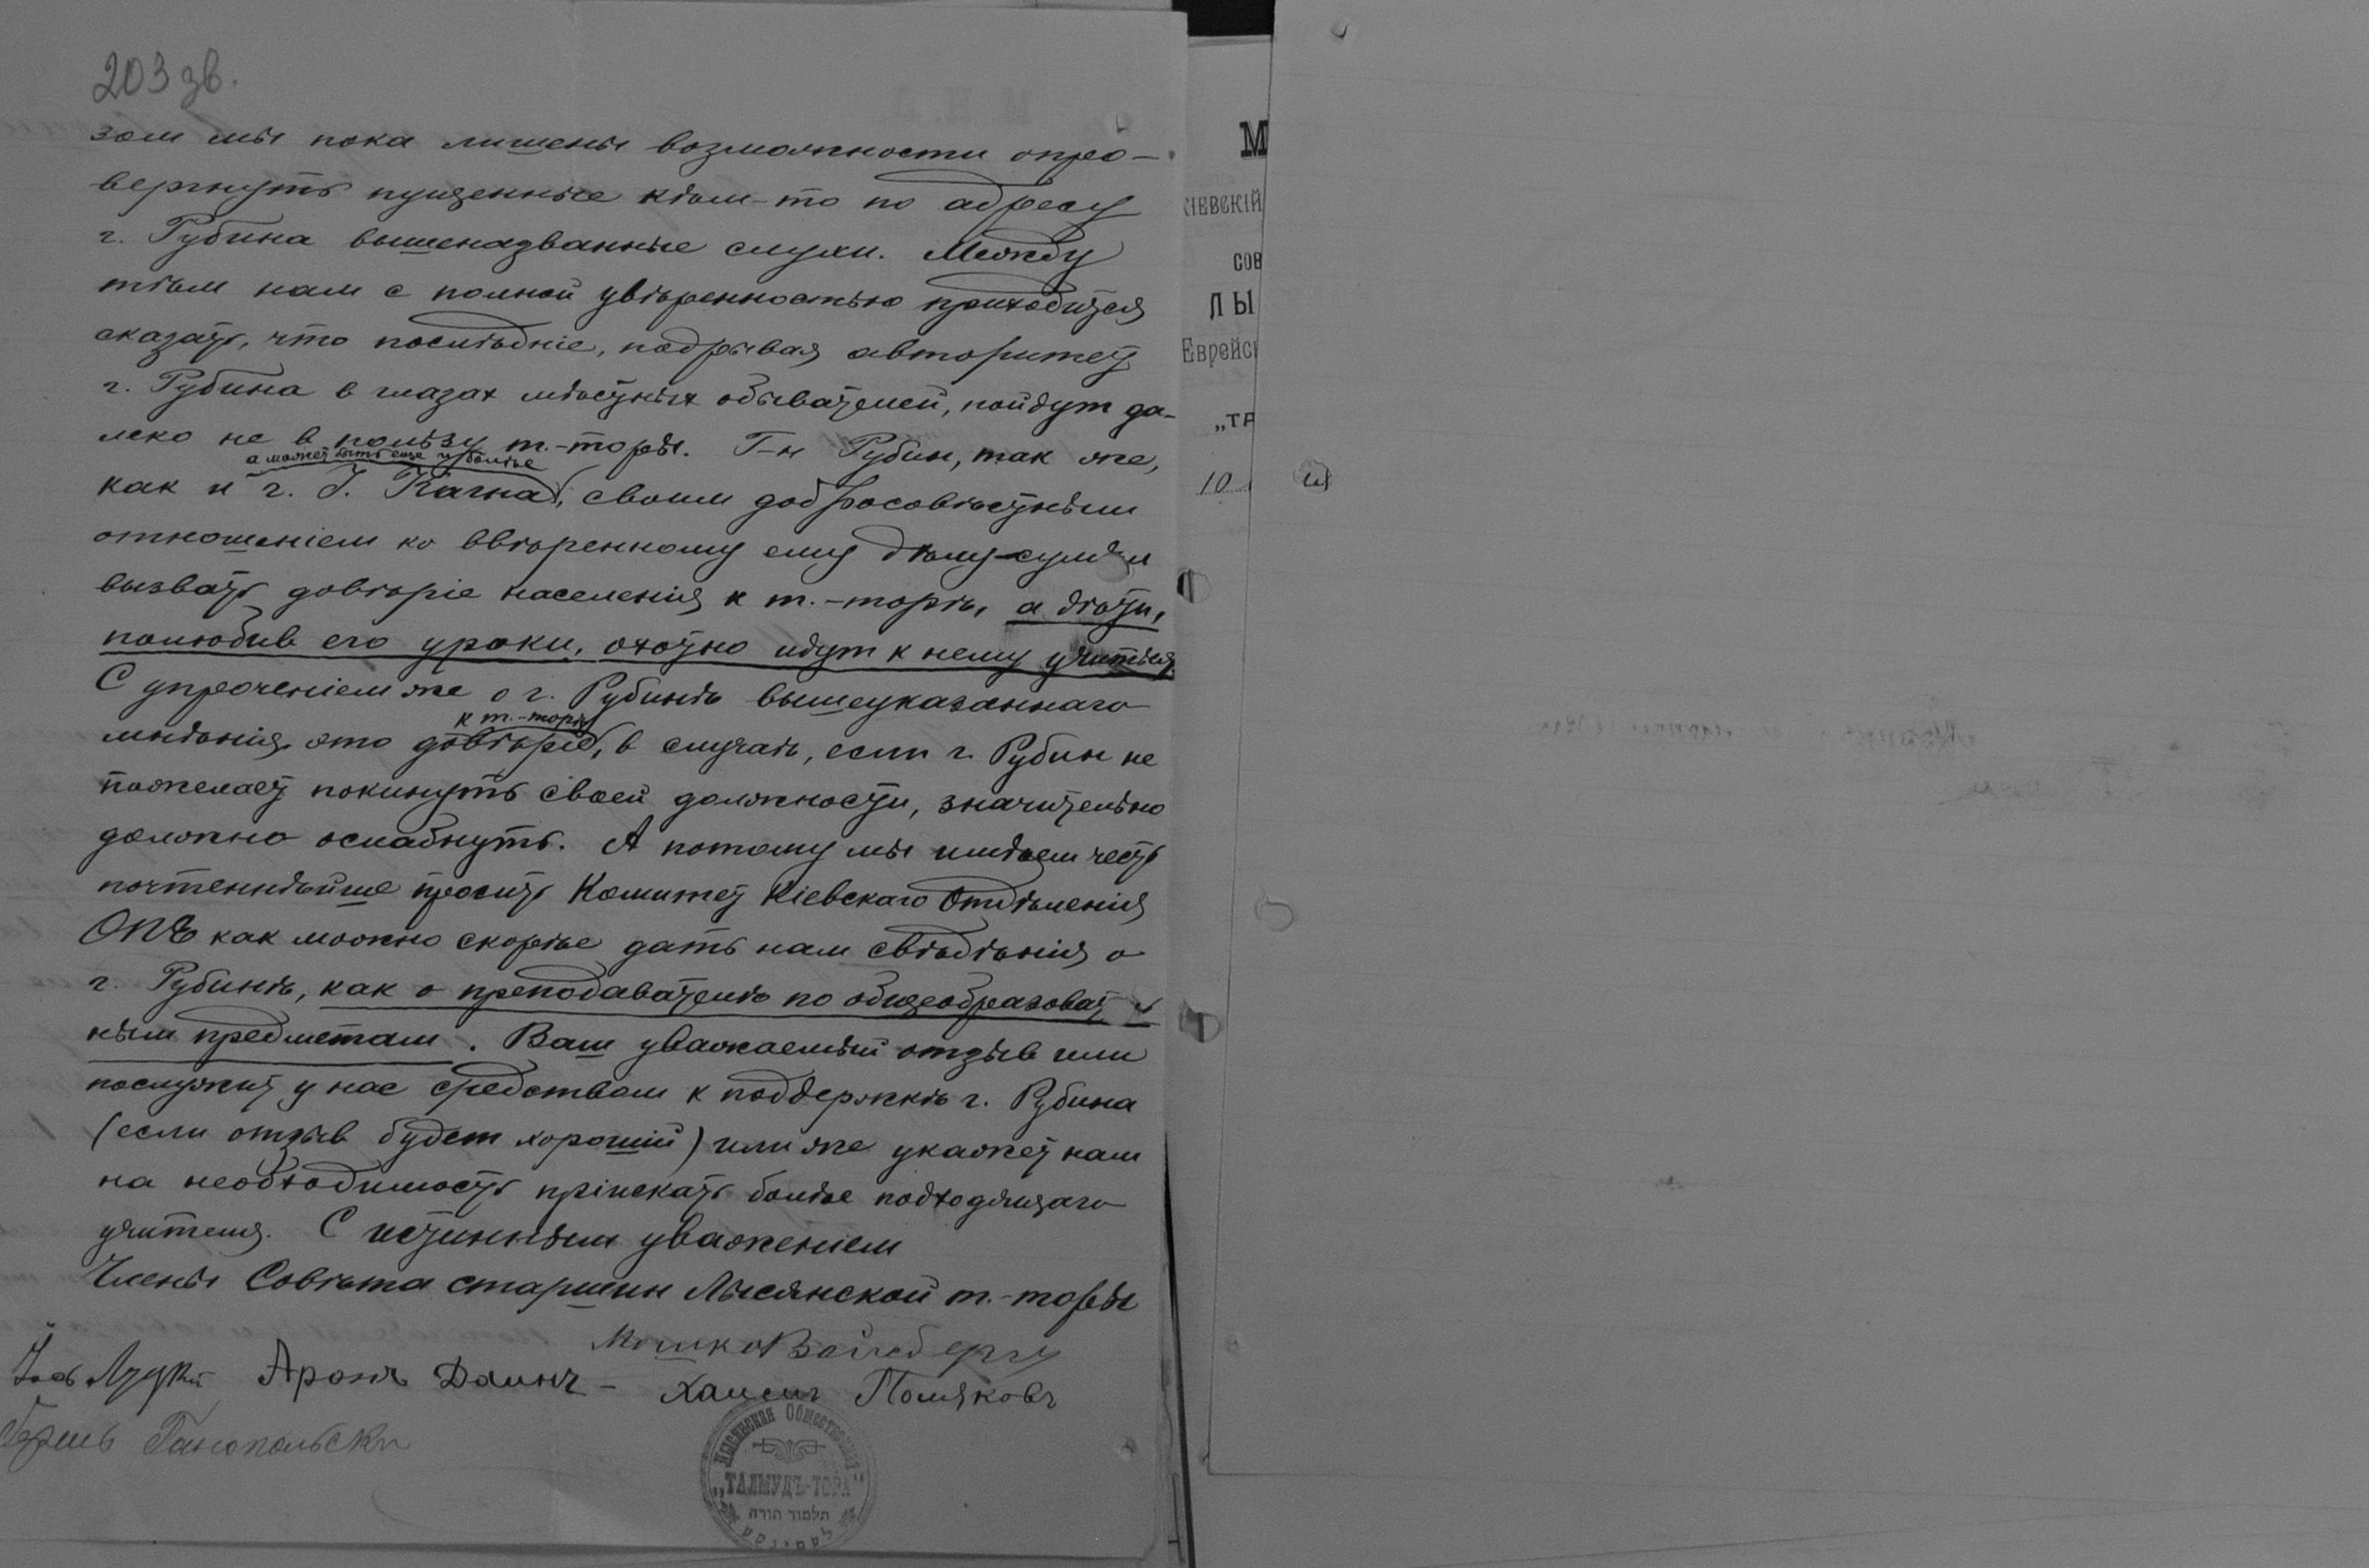 203 зв.
зом мы пока лишены возможности опро-
вергнуть пущенные кѣм-то по адресу
г. Рубина вышеназванные слухи. Между
тѣм нам с полной увѣренностью приходится
сказать, что послѣдніе, подрывая авторитет
г. Рубина в глазах мѣстных обывателей, пойдут да-
леко не в пользу т.-торы. Г-н Рубин, так же,
а может быть еще и болѣе
как и г. І. Кагна, своим добросовѣстным
отношеніем ко ввѣренному ему дѣлу сумѣл
вызвать довѣріе населенія к т.-торѣ, а дѣти,
полюбив его уроки, охотно идут к нему учиться.
С упроченіем же о г. Рубинѣ вышеуказаннаго
к т.-торѣ
мнѣнія это довѣріе, в случаѣ, если г. Рубин не
пожелает покинуть своей должности, значительно
должно ослабнуть. А потому мы имѣем честь
почтеннѣйше просить Комитет Кіевскаго Отдѣленія
ОПЕ как можно скорѣе дать нам свѣдѣнія о
г. Рубинѣ, как о преподавателѣ по общеобразоват
ным предметам. Ваш уважаемый отзыв или
послужит у нас средством к поддержкѣ г. Рубина
(если отзыв будет хороший) или же укажет нам
на необходимость пріискать болѣе подходящаго
учителя. С истинным уваженіем
Члены Совѣта старшин Лысянской т.-торы
Мошко Вайсберг
Арон Даин - Хаим Поляковъ
Ганопольски
Лысянская Общественная
„ТАЛМУДЪ-ТОРА“
תלמוד תורה
М
КІЕВСКІЙ
СОВ
ЛЫ
Еврейс
„ТР
10